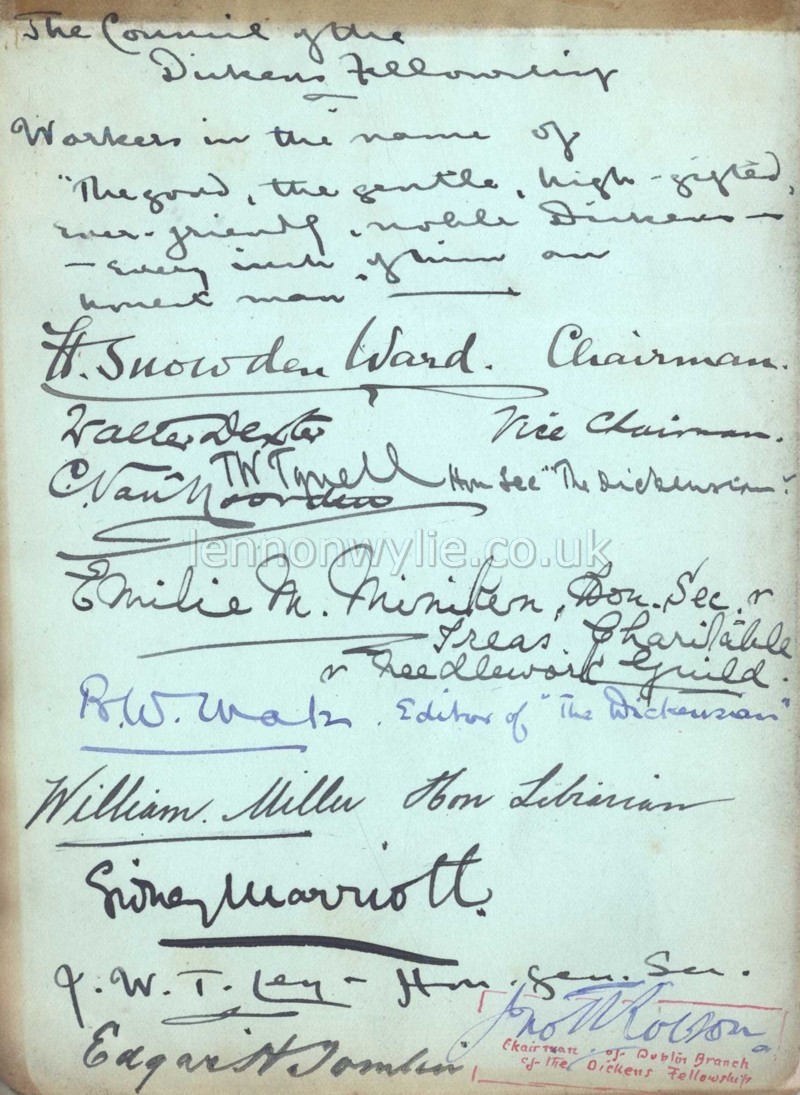 The Council of the
Dickens Fellowship
Workers in the name of
"The good, the gentle, high-gifted,
ever-friendly, noble Dickens –
– every inch of him an
honest man."
H. Snowden Ward. Chairman.
Walter Dexter Vice Chairman.
TW Tyrrell
C. Van Noorden Hon Sec "The Dickensian".
lennonwylie.co.uk
Emilie M. Miniken, Hon. Sec. &
Treas. Charitable
& Needlework Guild.
B.W. Matz. Editor of "The Dickensian"
William Miller Hon Librarian
Sidney Marriott.
J. W. T. Ley – Hon. Gen. Sec.
Edgar H Tomlin
Chairman of Dublin Branch
of the Dickens Fellowship